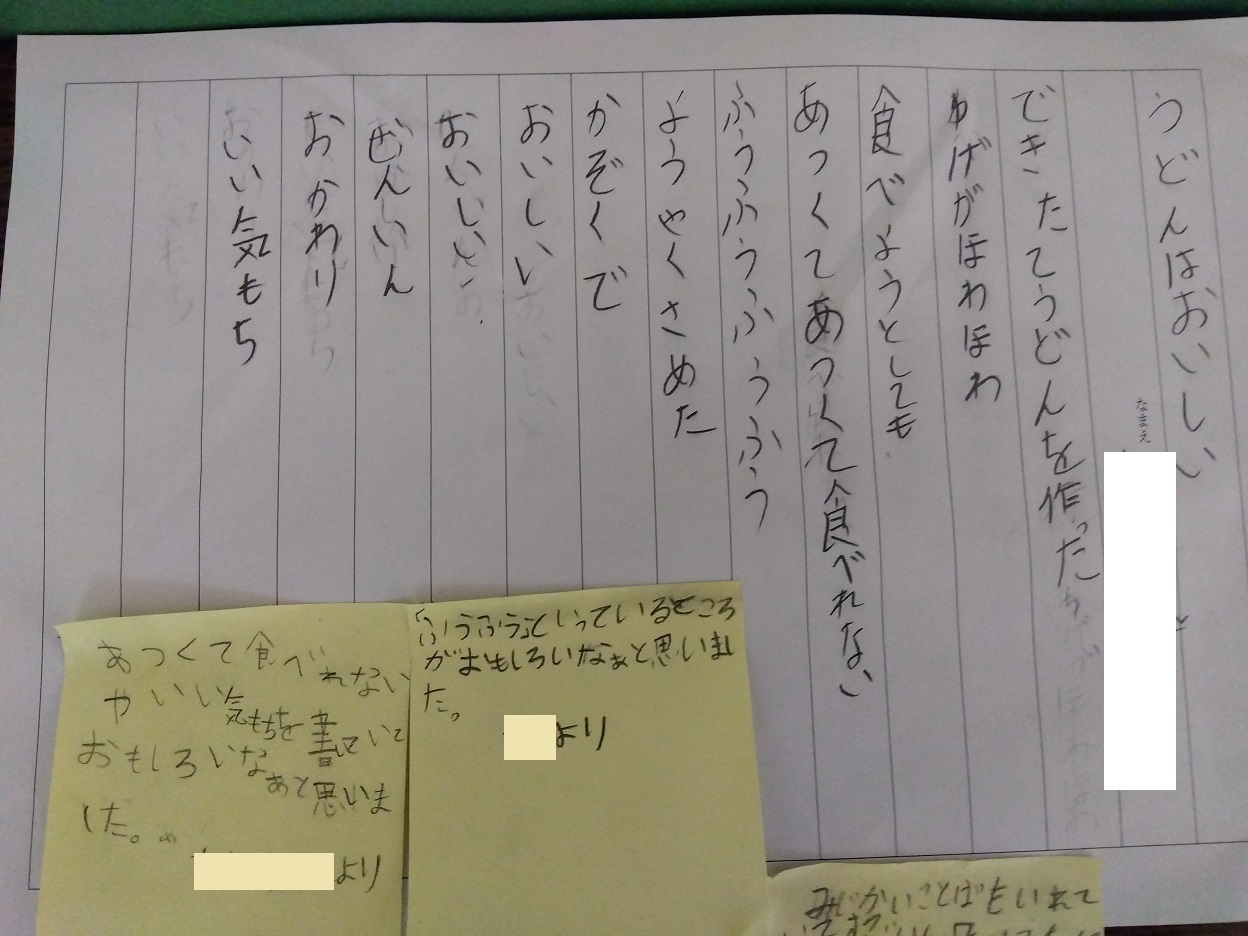 うどんはおいしい
なまえ
できたてうどんを作った
ゆげがほわほわ
食べようとしても
あっくてあつくて食べれない
ふうふうふうふうふう
ようやくさめた
かぞくで
おいしい
おいしい
ぜんいん
おかわり
いい気もち
「ふうふう」といっているところ
がおもしろいなぁと思いまし
た。
より
あつくて食べれない
やいい気もちを書いていて
おもしろいなぁと思いま
した。
より
みじかいことばをいれて